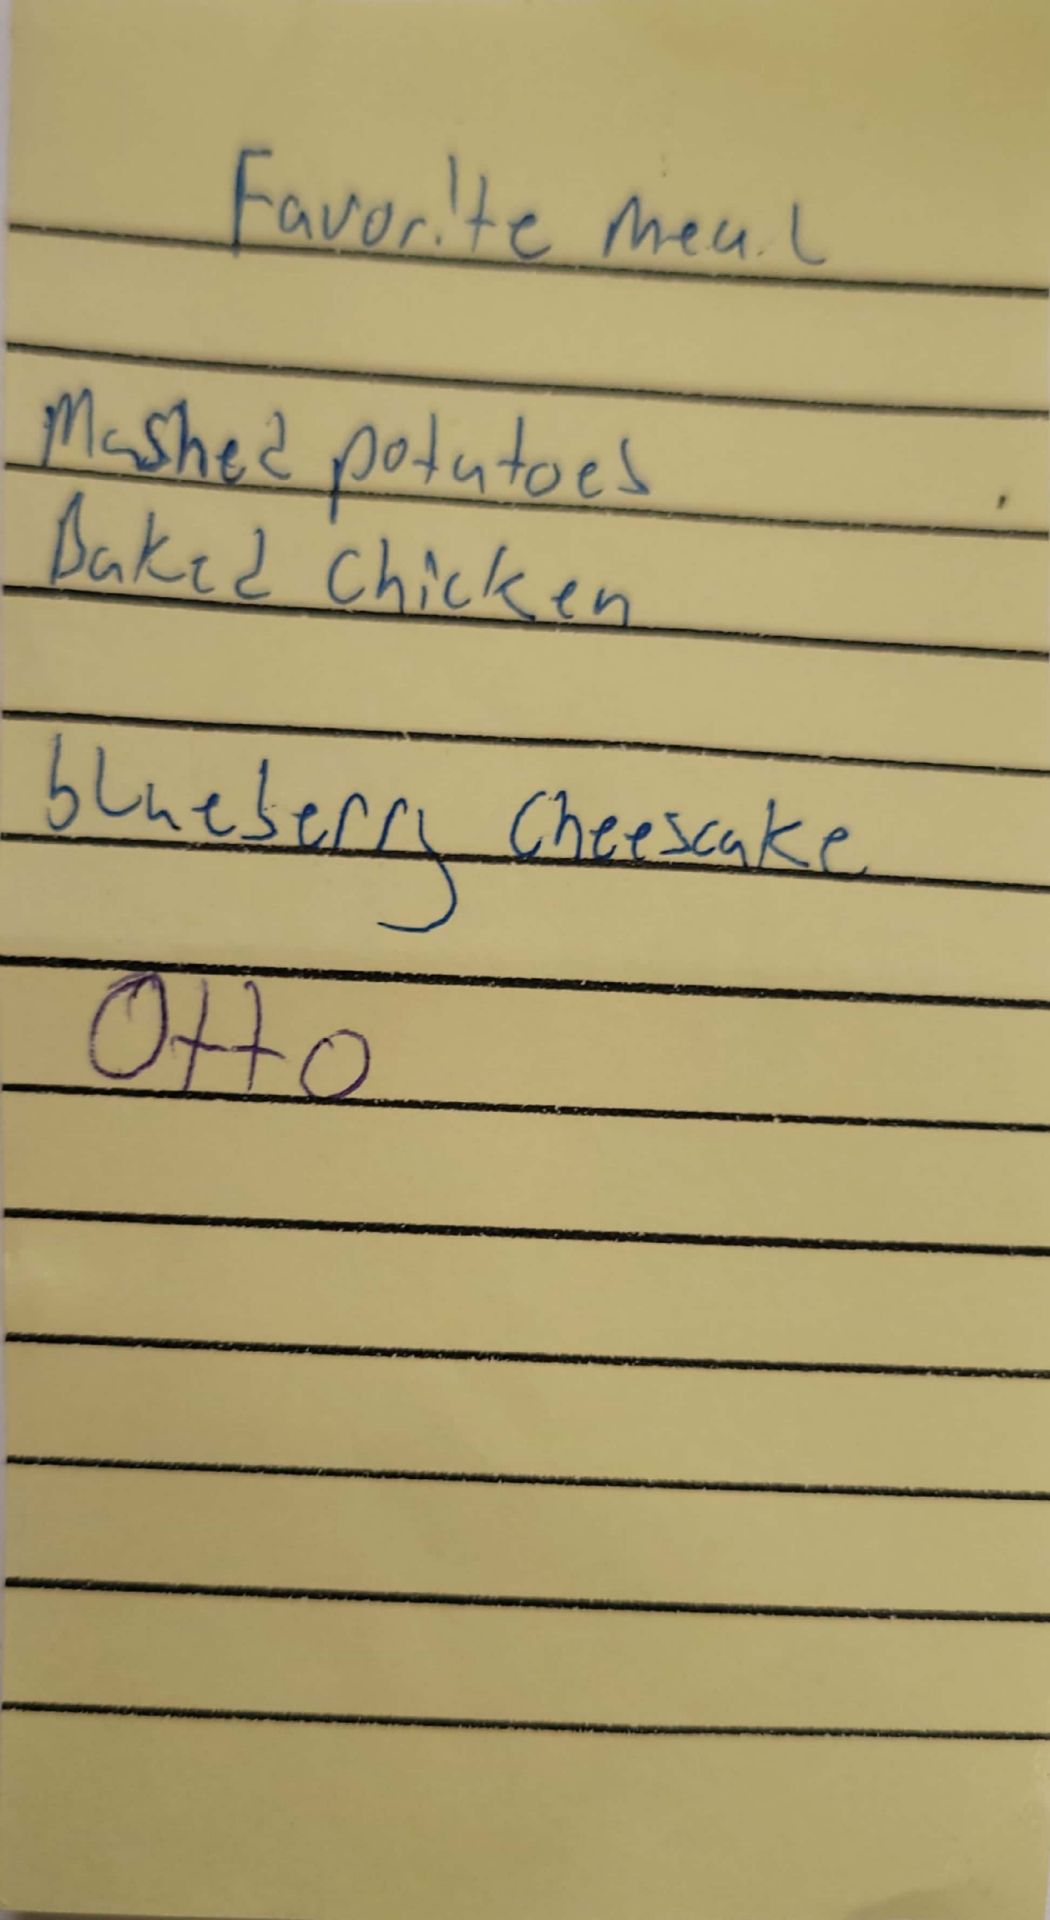 Favorite meal
Mashed potatoes
Baked chicken
blueberry Cheesecake
Otto